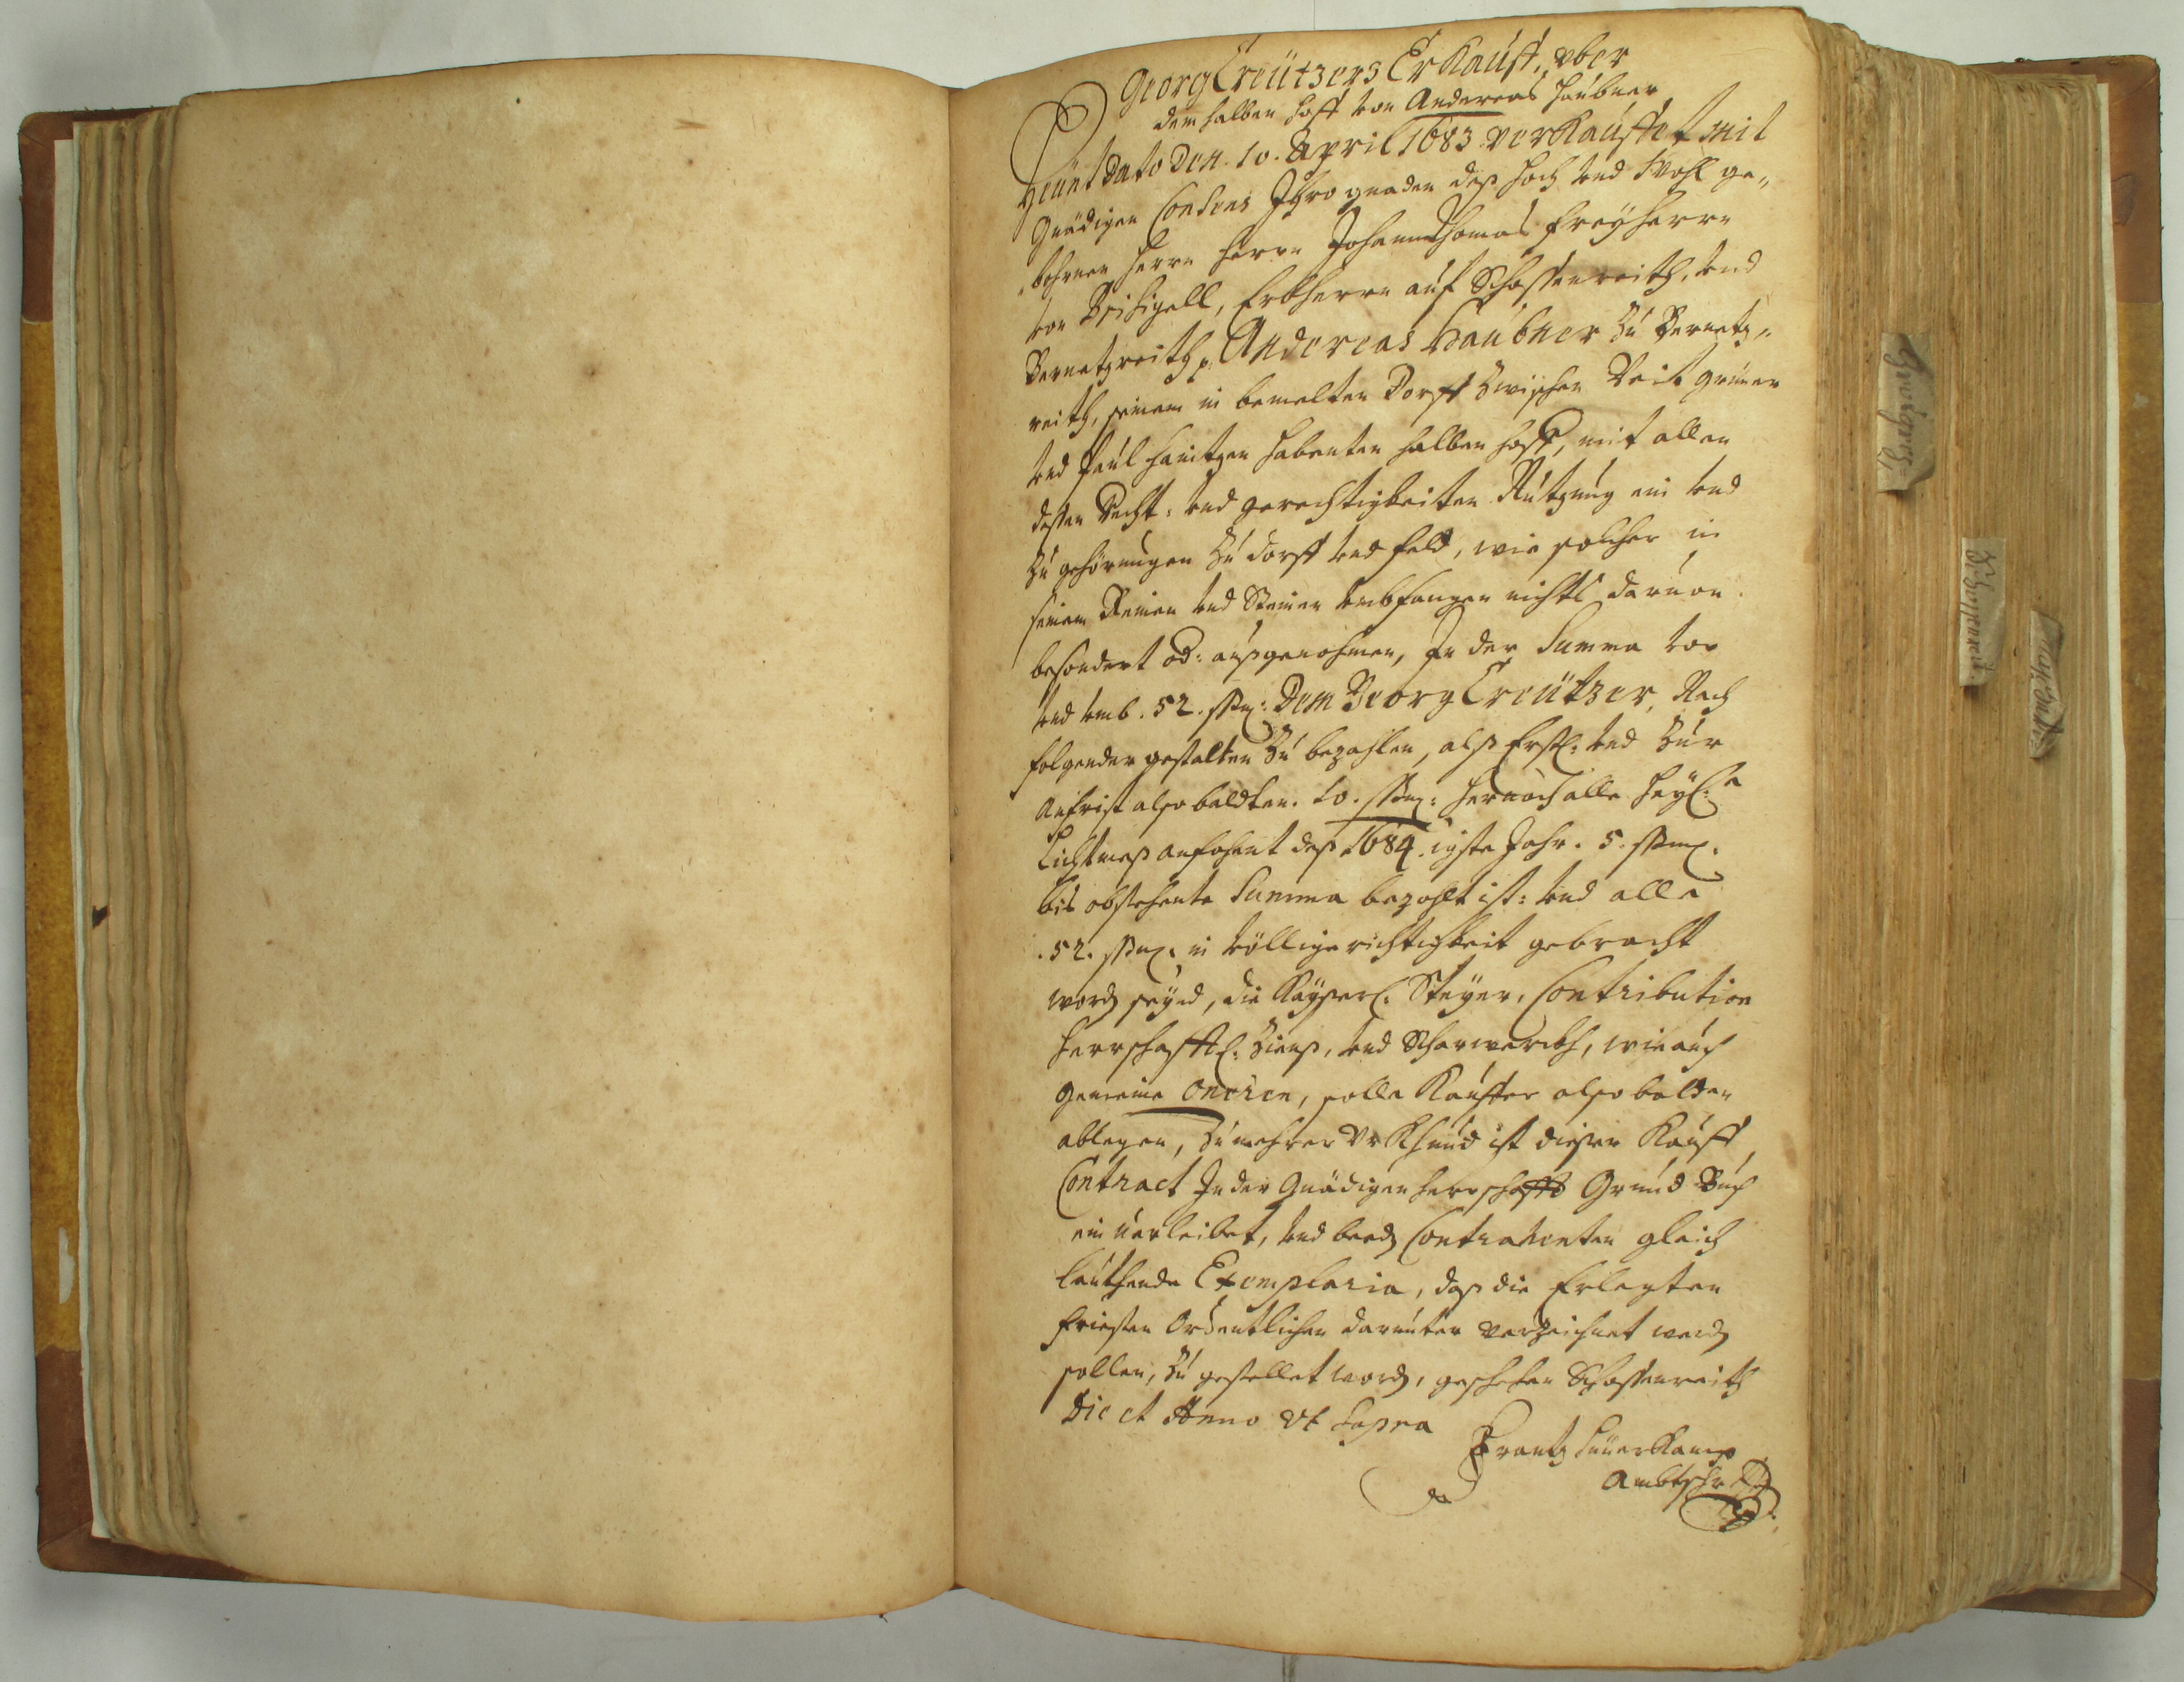 Georg Creützers Erkauff, vber
dem halben hoff von Andereas Haubner
Heünt Dato Den. 10. April 1683 verkauffet mit
Gnädigen Consens Ihro gnaden deß hoch vnd Wohl ge„
„bohrnen herrn herrn Johann Thomas freÿherrn
von, Erbherrn auf Schossenreith, vnd
Bernetzreith p. Andereas Haubner zu Bernetz„
reith, seinen in bemelten Dorff zwischen Veit
vnd Paul habenten halben hoff, mit allen
dessen Recht: vnd gerechtigkeiten Nutzung ein vnd
Zu gehörungen zu dorff vnd feld, wie solcher in
seinen Reinen vnd Steinen vmbfangen nichts daruon
besondert od: außgenohmen, In der Summa vor
vnd vmb. 52. ßn: Dem Georg Creützer, Nach
folgender gestalten zu bezahlen, alß Erstl: vnd zur
Anfrist also baldten. 10. ßn: hernoch alle heÿl:
Lichtmeß anfohent deß 1684. igste Johr. 5. ßn.
bis obstehente Summa bezohlt ist: vnd alle
.52. ßn. in völlige richtigkeit gebracht
word seÿnd, die Kaÿserl: Steÿer, Contribution
herrschafftl: Zienß, vnd Scharwerckh, wie auch
gemeine oneren, solle Kauffer also balden
ablegen, zu mehrer Vrkhund ist dieser Kauff
Contract In der Gnädigen herrschafft Grund Buch
ein uerleibet, vnd beed Contrahenten gleich
lauthende Exemplaria, daß die Erlegten
friesten Ordentlichen darunter verzeichnet werd
sollen, zu gestellet word, geschehen Schossenreith
Die et Anno Vt Supra
Frantz
Ambtschr